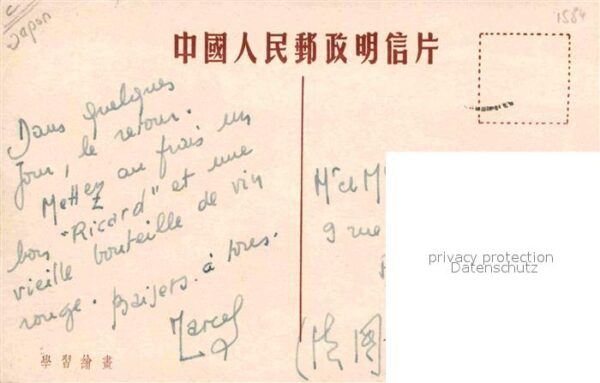 Japon
1584
中國人民郵政明信片
Dans quelques
jour, le retour.
Mettez au frais un
bon "Ricard" et une
vieille bouteille de vin
rouge. Baisers à tous.
Marcel
學習繪畫
Mr et M
9 rue
(法国
privacy protection
Datenschutz